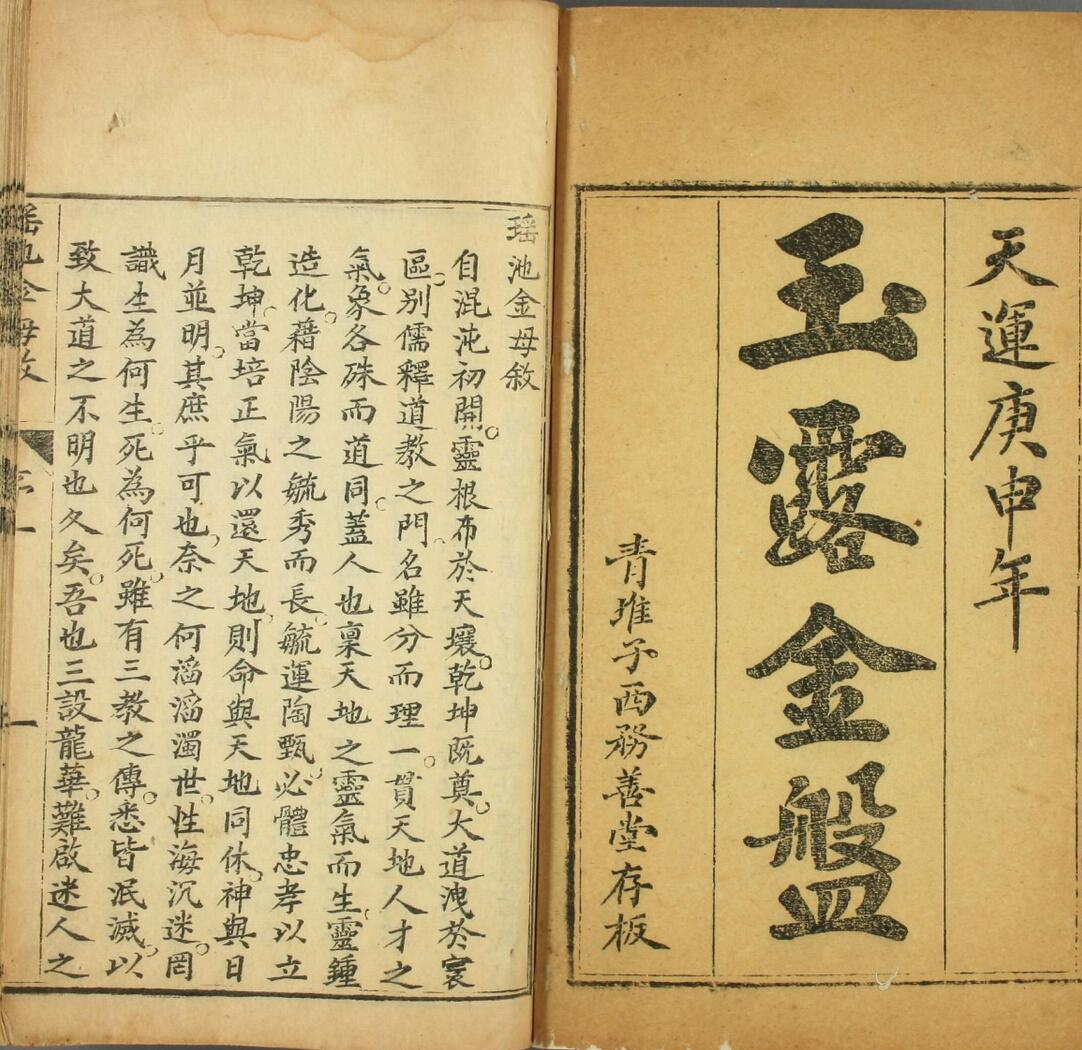 天運庚申年
玉露金盤
青堆子西務善堂存板
瑶池金母敘
自混沌初開靈根布於天壤乾坤既奠大道洩於寰
區別儒釋道教之門名雖分而理一貫天地人才之
氣象各殊而道同蓋人也稟天地之靈氣而生靈鍾
造化藉陰陽之毓秀而長毓運陶甄必體忠孝以立
乾坤當培正氣以還天地則命與天地同休神與日
月並明其庶乎可也奈之何滔滔濁世性海沉迷罔
識生為何生死為何死雖有三教之傳悉皆泯滅以
致大道之不明也久矣吾也三設龍華難啟迷人之